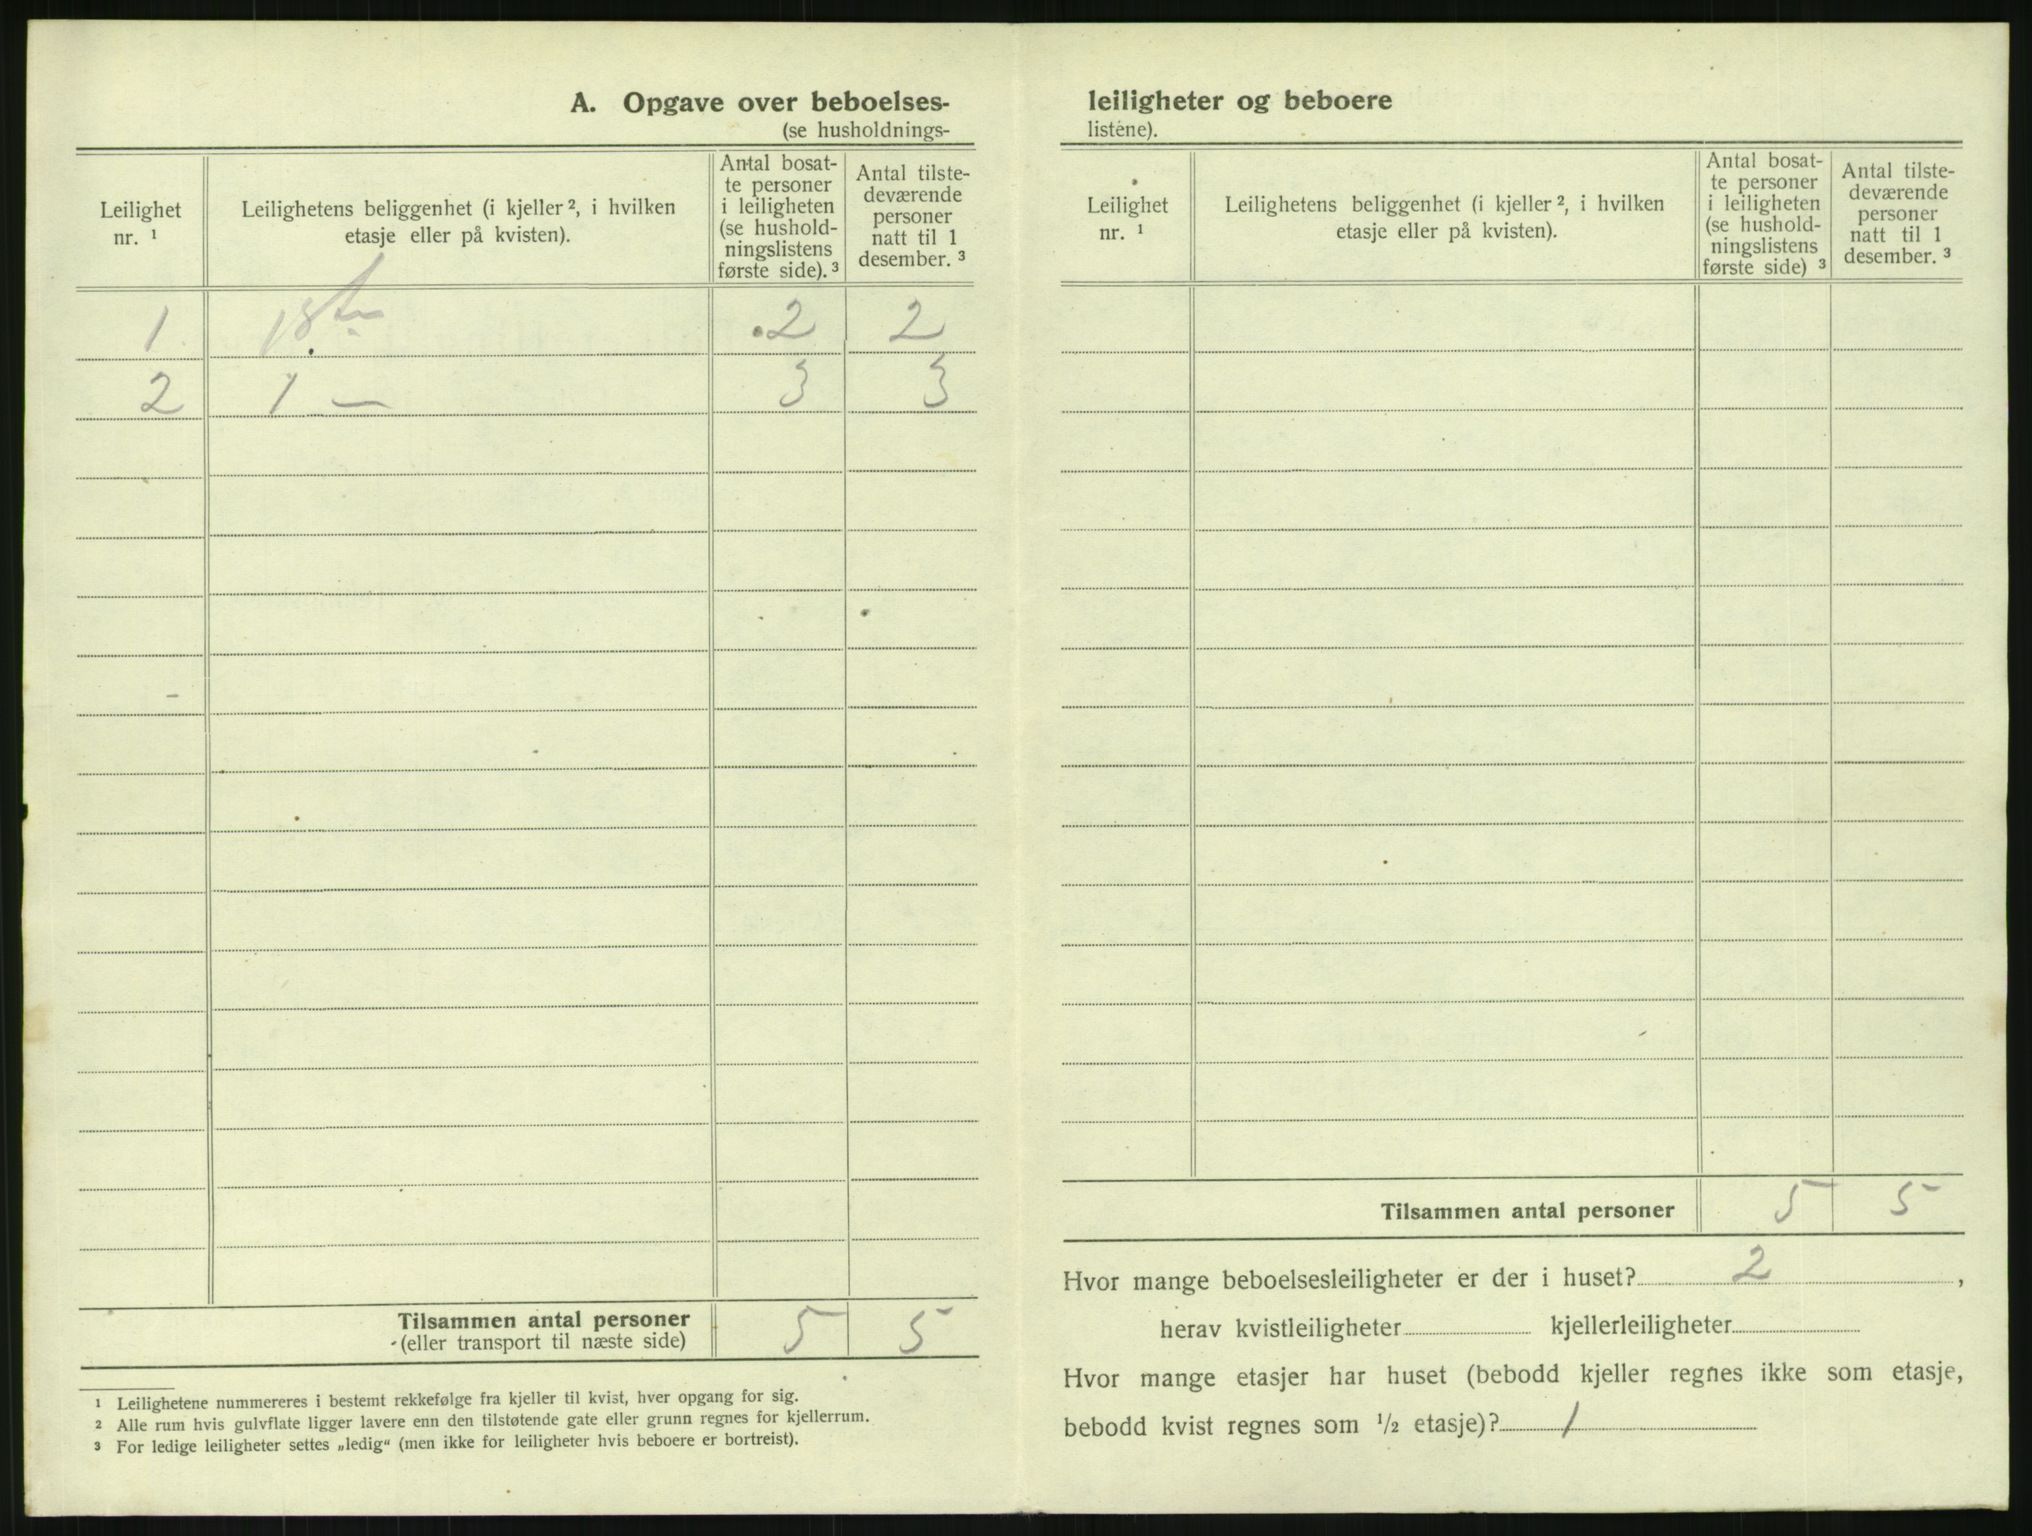 A. Opgave over beboelses-
(se husholdnings-
Leilighet
nr. ¹
Leilighetens beliggenhet (i kjeller ², i hvilken
etasje eller på kvisten).
Antal bosat-
te personer
i leiligheten
(se hushold-
ningslistens
første side). ³
Antal tilste-
deværende
personer
natt til 1
desember. ³
1 2 2
2 1 — 3 3
Tilsammen antal personer 5 5
(eller transport til næste side)
¹ Leilighetene nummereres i bestemt rekkefølge fra kjeller til kvist, hver opgang for sig.
² Alle rum hvis gulvflate ligger lavere enn den tilstøtende gate eller grunn regnes for kjellerrum.
³ For ledige leiligheter settes „ledig“ (men ikke for leiligheter hvis beboere er bortreist).
leiligheter og beboere
listene).
Leilighet
nr. ¹
Leilighetens beliggenhet (i kjeller ², i hvilken
etasje eller på kvisten).
Antal bosat-
te personer
i leiligheten
(se hushold-
ningslistens
første side) ³
Antal tilste-
deværende
personer
natt til 1
desember. ³
Tilsammen antal personer 5 5
Hvor mange beboelsesleiligheter er der i huset? 2 ,
herav kvistleiligheter kjellerleiligheter
Hvor mange etasjer har huset (bebodd kjeller regnes ikke som etasje,
bebodd kvist regnes som ½ etasje)? 1